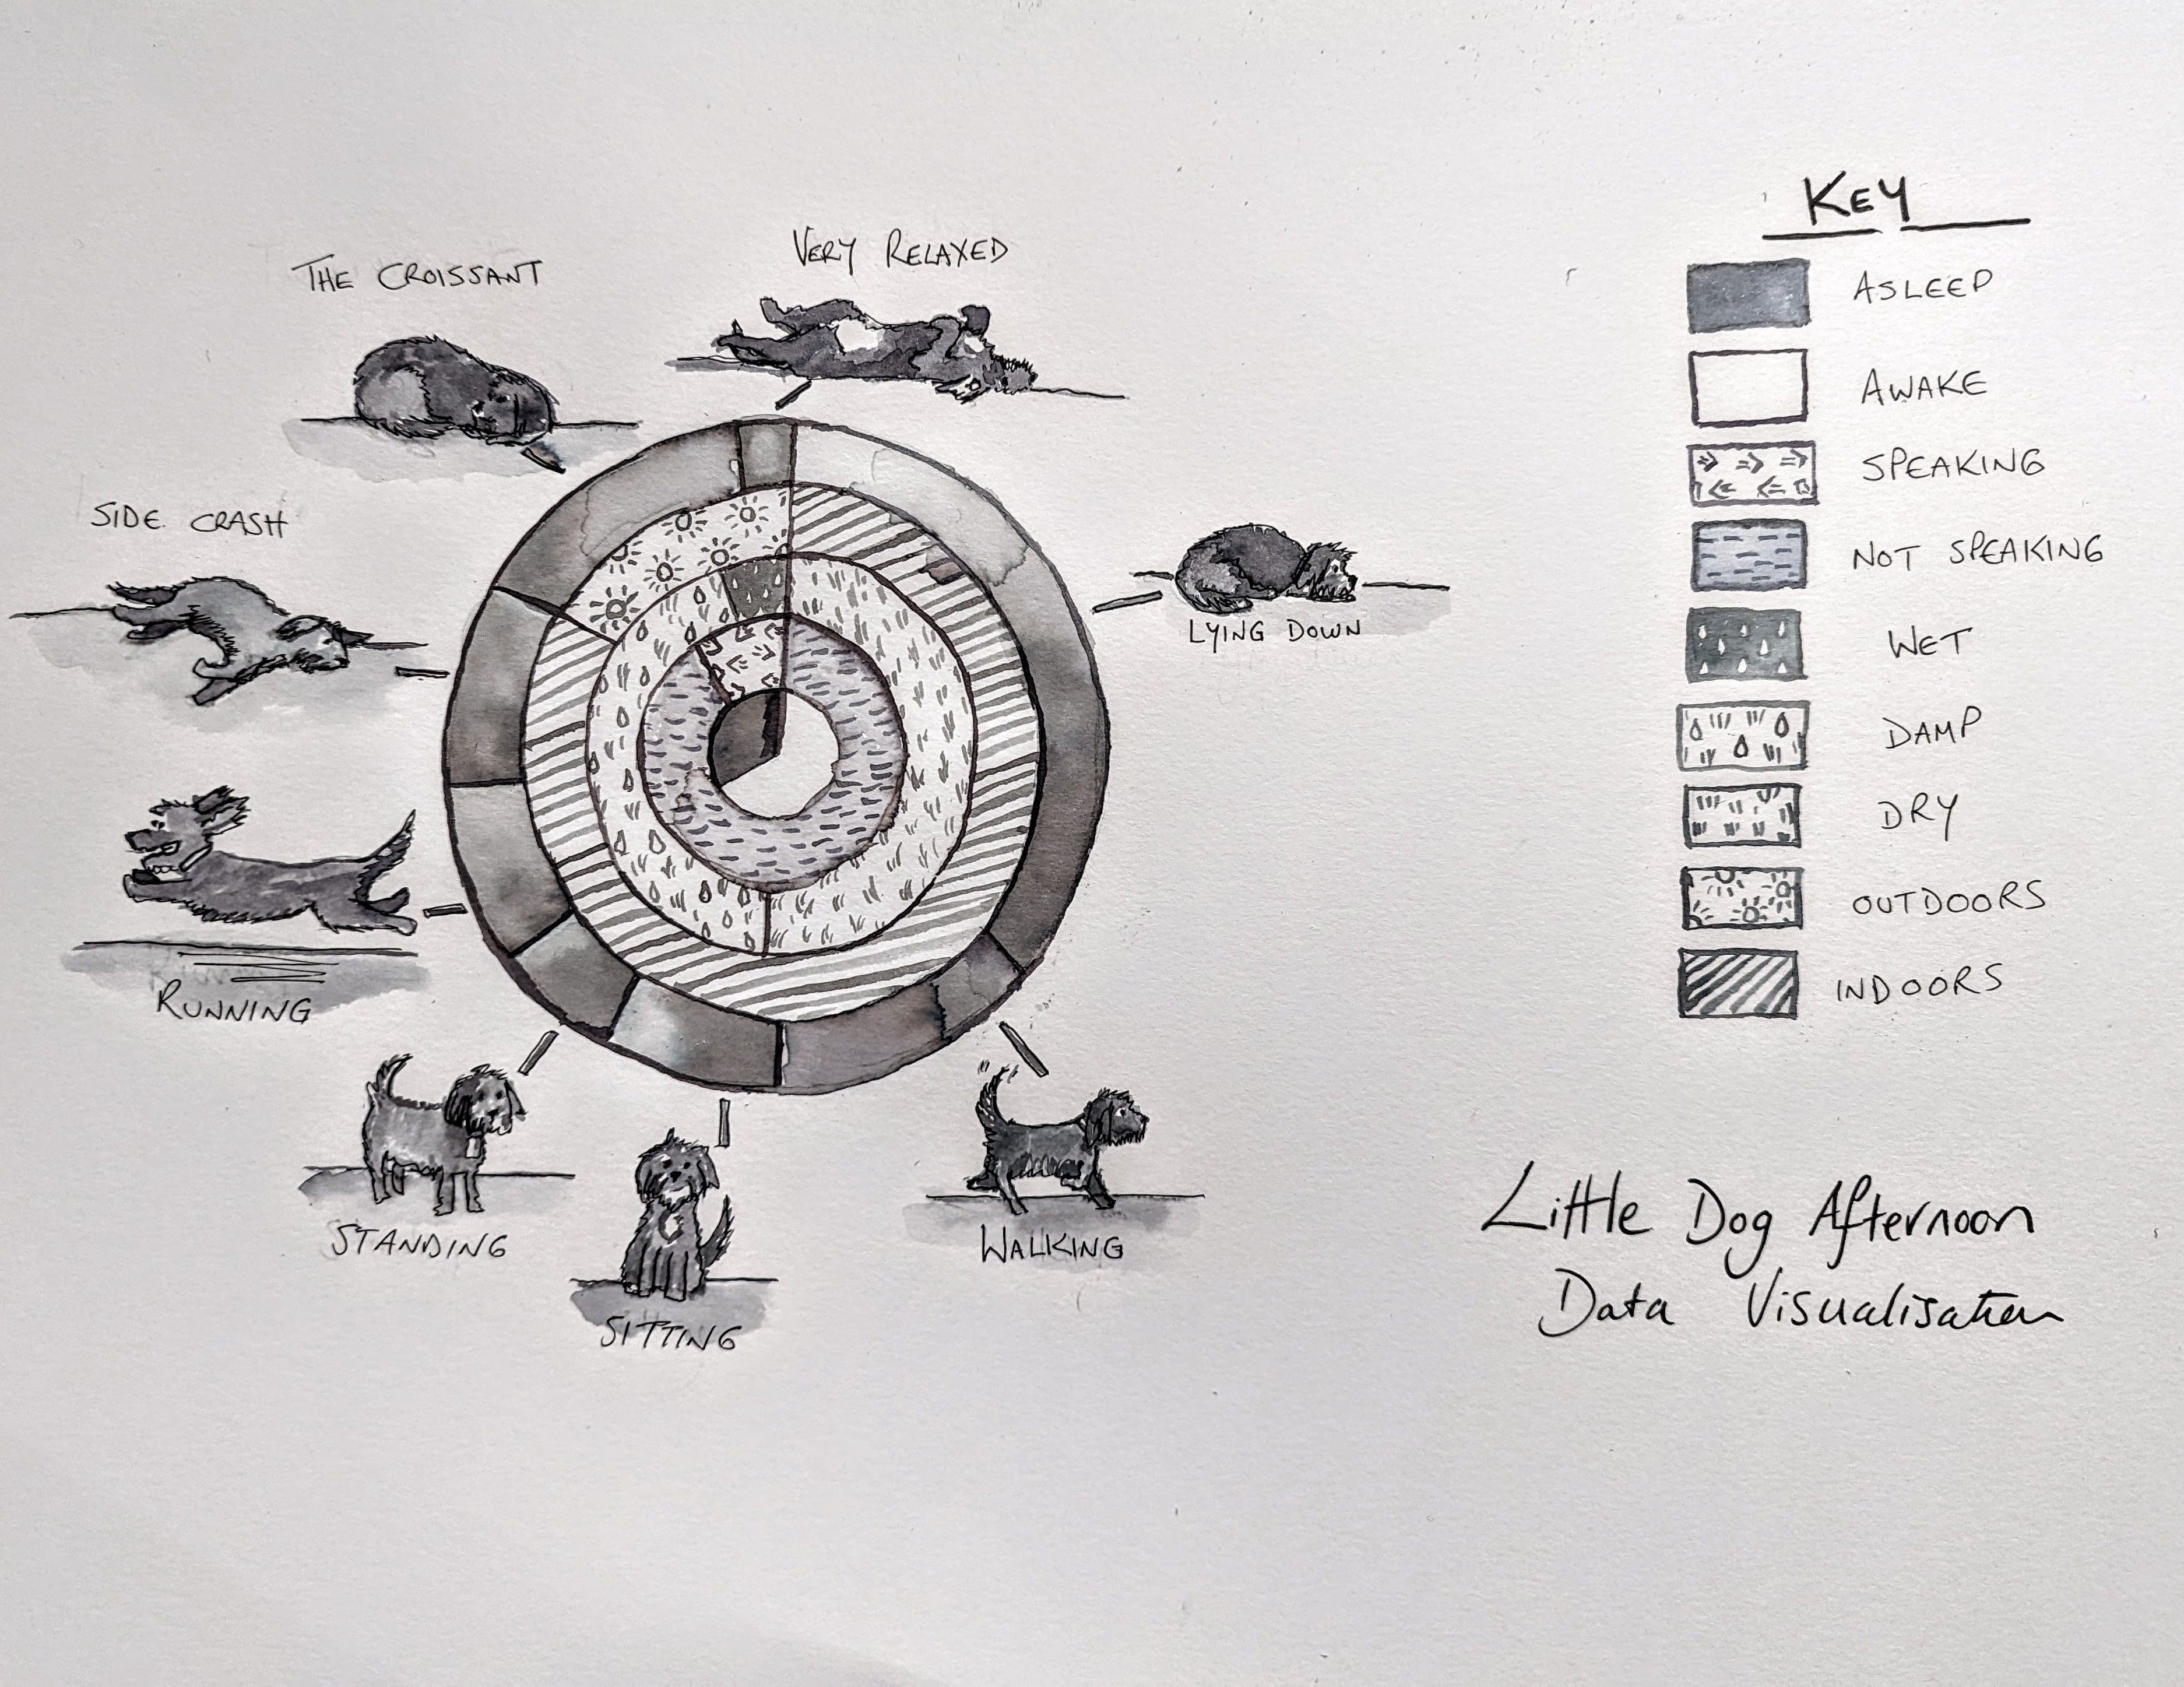 THE CROISSANT
VERY RELAXED
SIDE CRASH
LYING DOWN
RUNNING
STANDING
SITTING
WALKING
KEY
ASLEEP
AWAKE
SPEAKING
NOT SPEAKING
WET
DAMP
DRY
OUTDOORS
INDOORS
Little Dog Afternoon
Data Visualisation